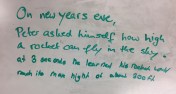 On new years eve,
Peter asked himself how high
a rocket can fly in the sky.
at 8 seconds he learned his rocket would
reach its max hight of about 800 ft